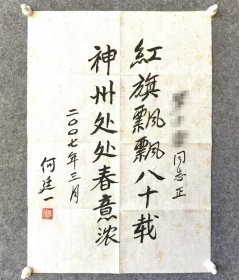 同志正
紅旗飘飘八十载
神州处处春意浓
二〇〇七年三月
何廷一